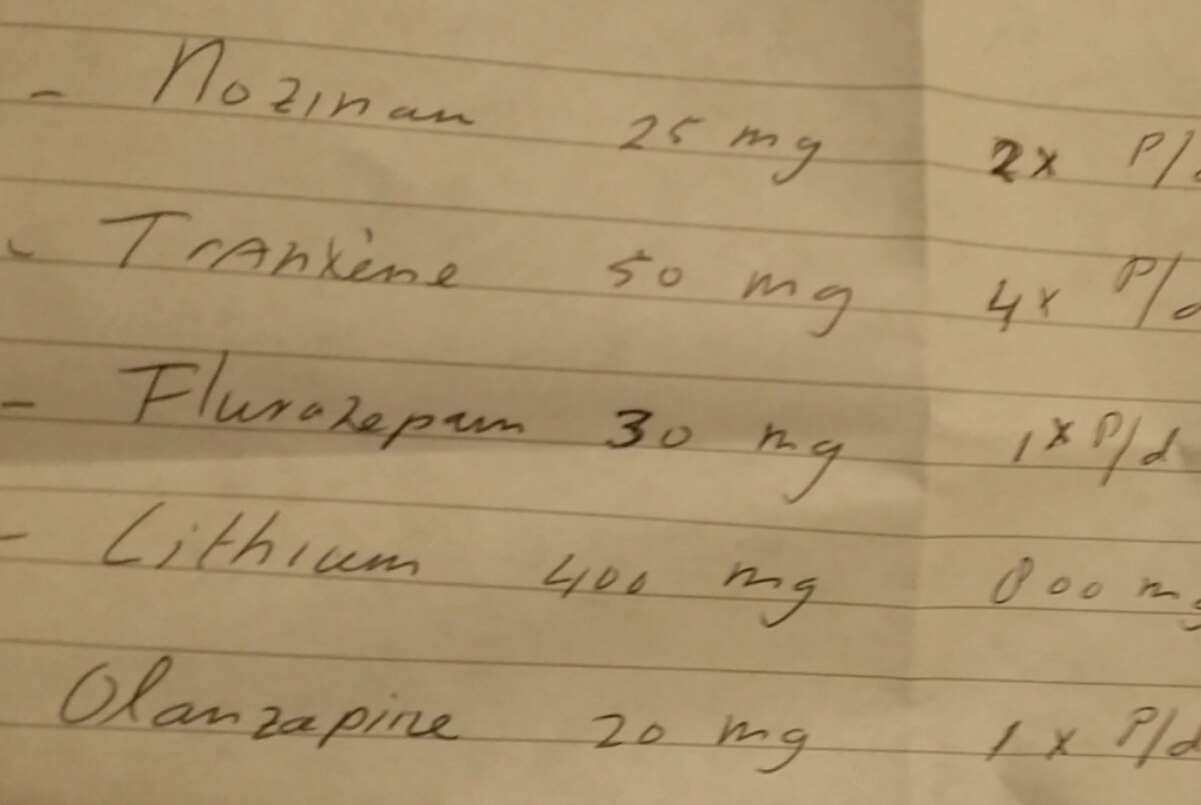 - Nozinan 25 mg 2x P/
- Tranxène 50 mg 4x P/d
- Flurazepam 30 mg 1x P/d
- Lithium 400 mg 800 mg
Olanzapine 20 mg 1x P/d